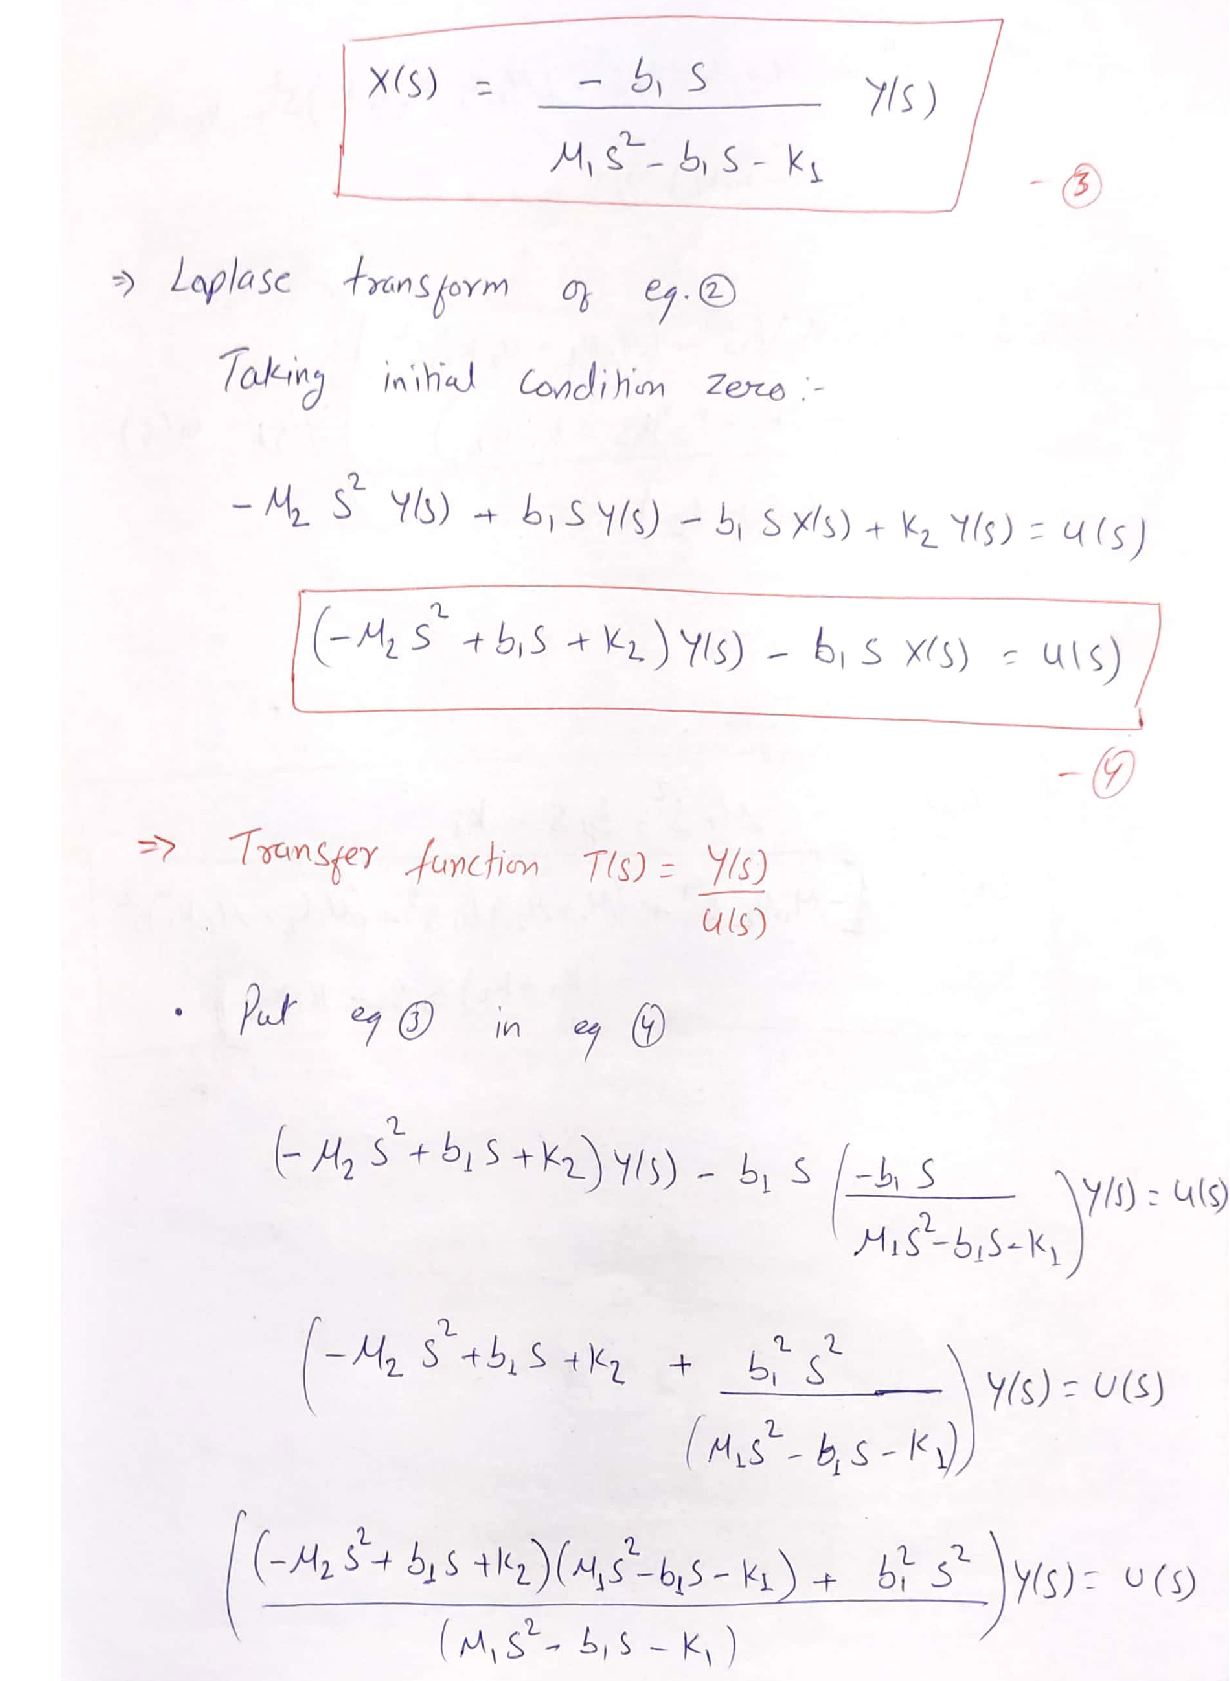 X(s) = - b₁ s / M₁ s² - b₁ s - K₁ Y(s)
- ③
⇒ Laplase transform of eq. ②
Taking initial condition zero :-
- M₂ s² Y(s) + b₁ s Y(s) - b₁ s X(s) + K₂ Y(s) = u(s)
(- M₂ s² + b₁ s + K₂) Y(s) - b₁ s X(s) = u(s)
- ④
⇒ Transfer function T(s) = Y(s) / u(s)
• Put eq ③ in eq ④
(- M₂ s² + b₁ s + K₂) Y(s) - b₁ s (- b₁ s / M₁ s² - b₁ s - K₁) Y(s) = u(s)
(- M₂ s² + b₁ s + K₂ + b₁² s² / (M₁ s² - b₁ s - K₁)) Y(s) = U(s)
((- M₂ s² + b₁ s + K₂)(M₁ s² - b₁ s - K₁) + b₁² s² / (M₁ s² - b₁ s - K₁)) Y(s) = U(s)